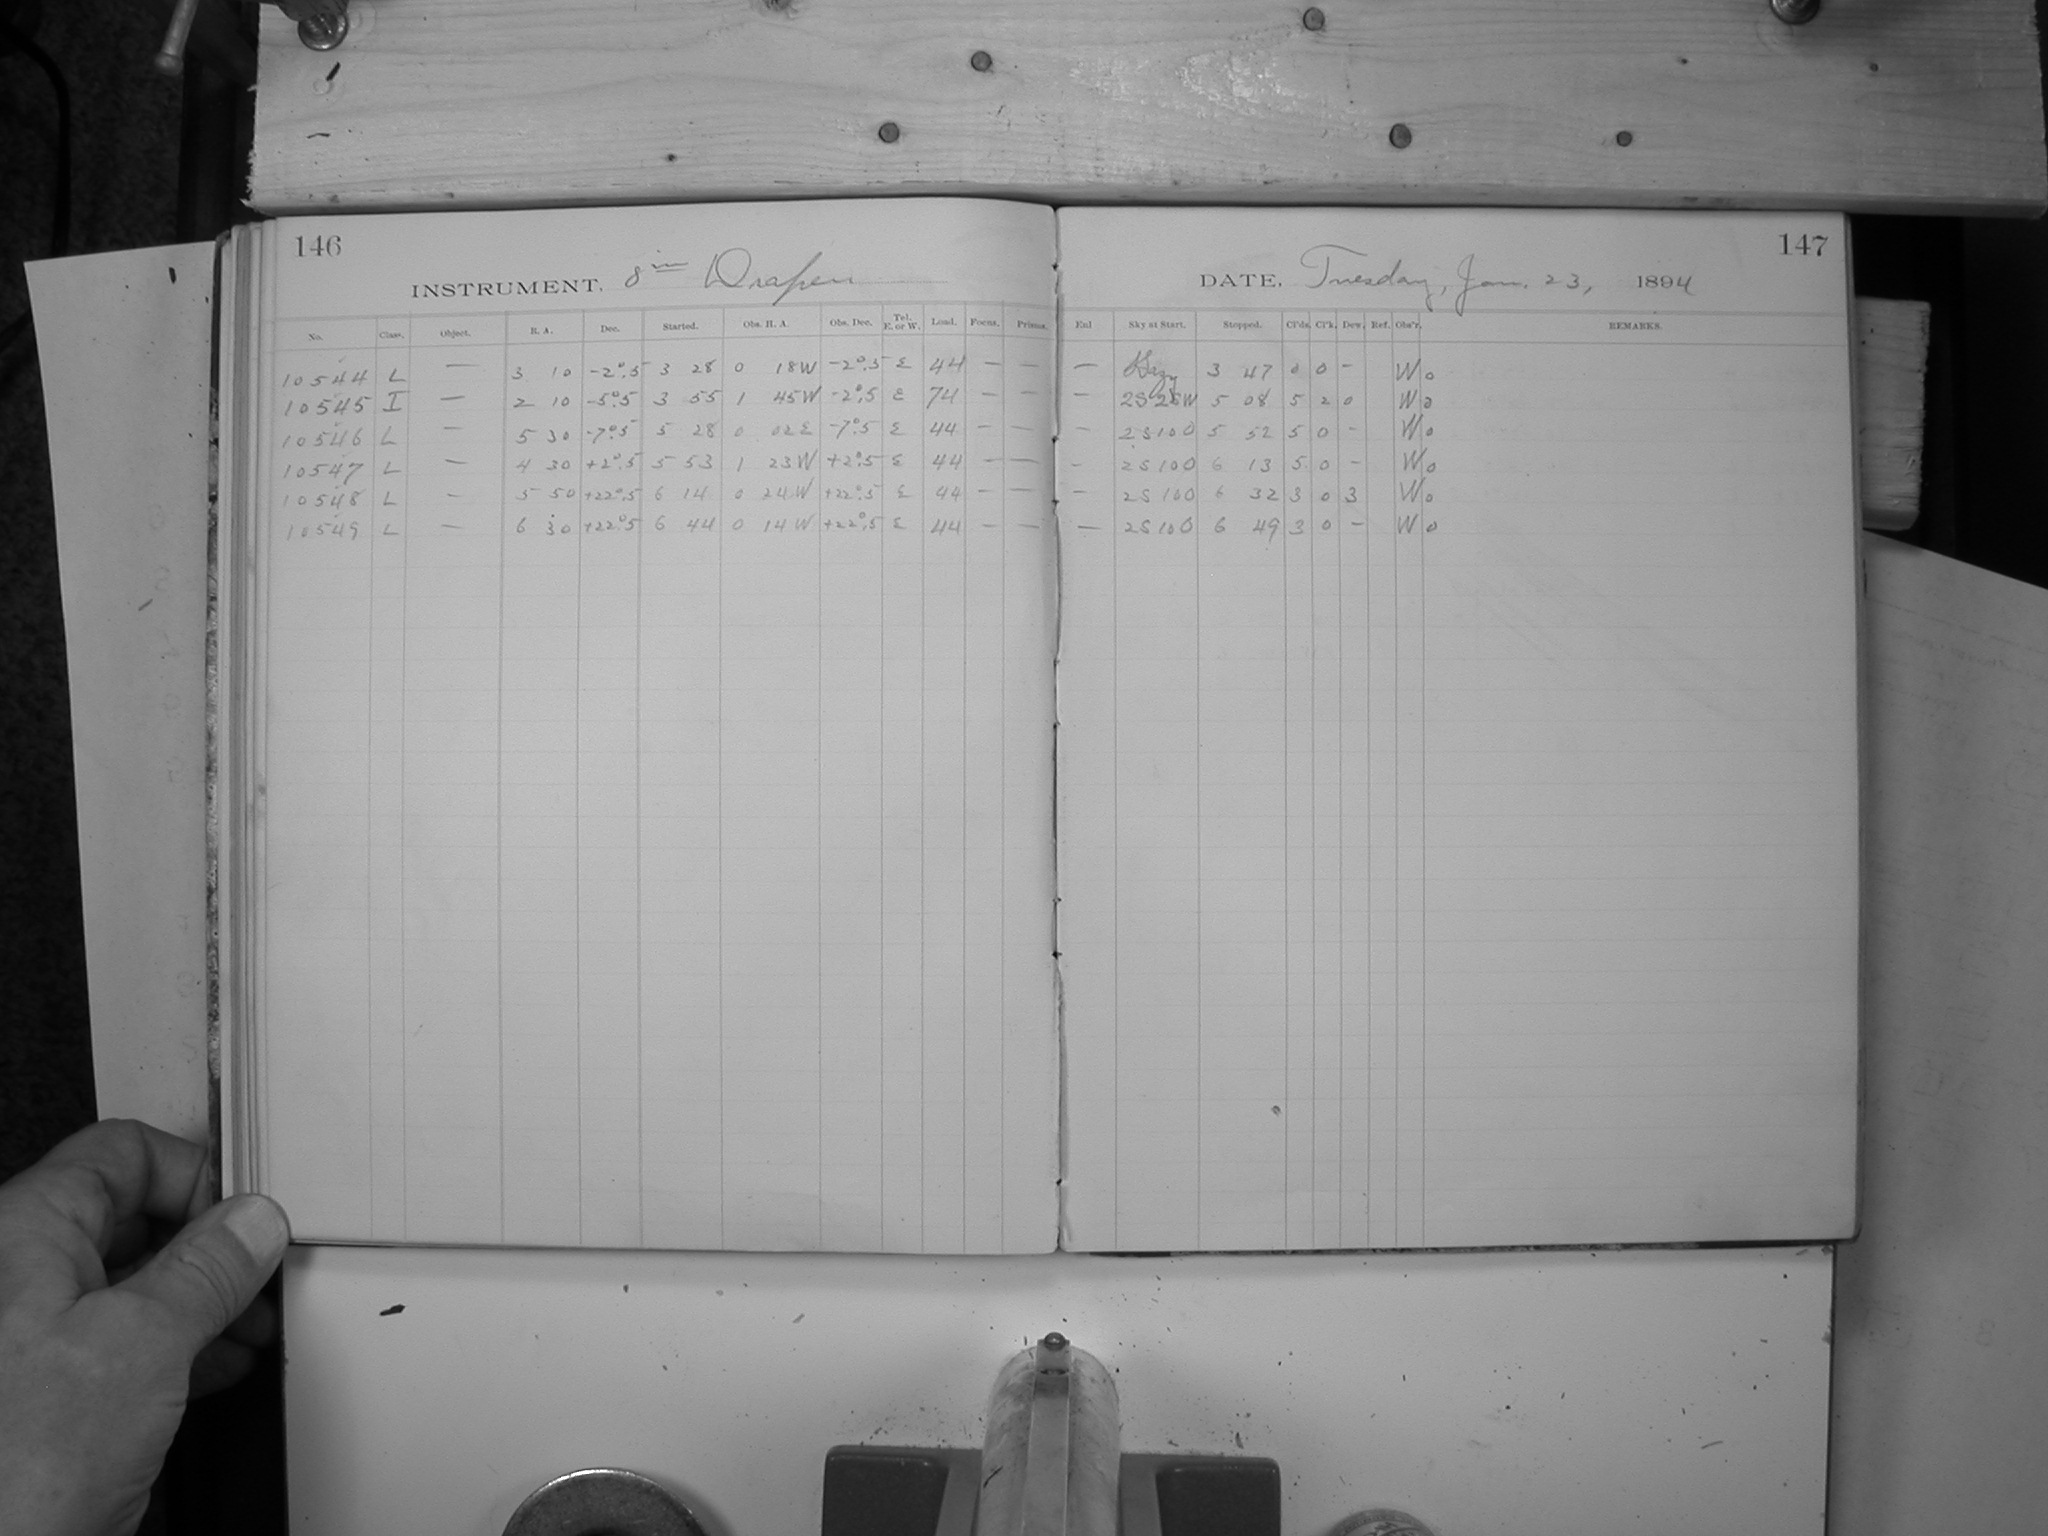 146
INSTRUMENT. 8 in Draper
No. Class. Object. R. A. Dec. Started. Obs. H. A. Obs. Dec. Tel. E. or W. Load. Focus. Prisms.
10544 L — 3 10 -2°.5 3 28 0 18W -2°.5 E 44 — —
10545 I — 2 10 -5°.5 3 55 1 45W -2°.5 E 74 — —
10546 L — 5 30 -7°.5 5 28 0 02E -7°.5 E 44 — —
10547 L — 4 30 +2°.5 5 53 1 23W +2°.5 E 44 — —
10548 L — 5 50 +22°.5 6 14 0 24W +22°.5 E 44 — —
10549 L — 6 30 +22°.5 6 44 0 14W +22°.5 E 44 — —
147
DATE. Tuesday, Jan. 23, 1894
Sky at Start. Stopped. Cl'ds. Cl'k. Dew. Ref. Obs'r. REMARKS.
— Hazy 3 47 0 0 - W o
— 2S 25W 5 08 5 2 0 W
— 2S100 5 52 5 0 - W o
- 2S100 6 13 5 0 - W o
— 2S100 6 32 3 0 3 W o
— 2S100 6 49 3 0 - W o